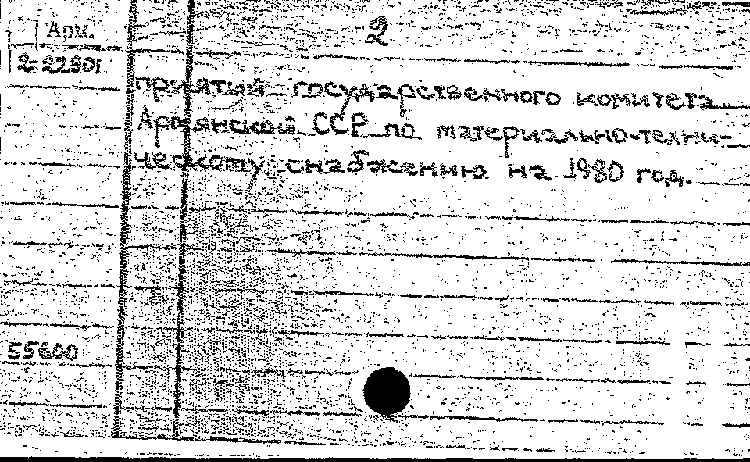 2
Арм.
2-22801
приятий государственного комитета
Армянской ССР по материально-техни-
ческому снабжению на 1980 год.
55600